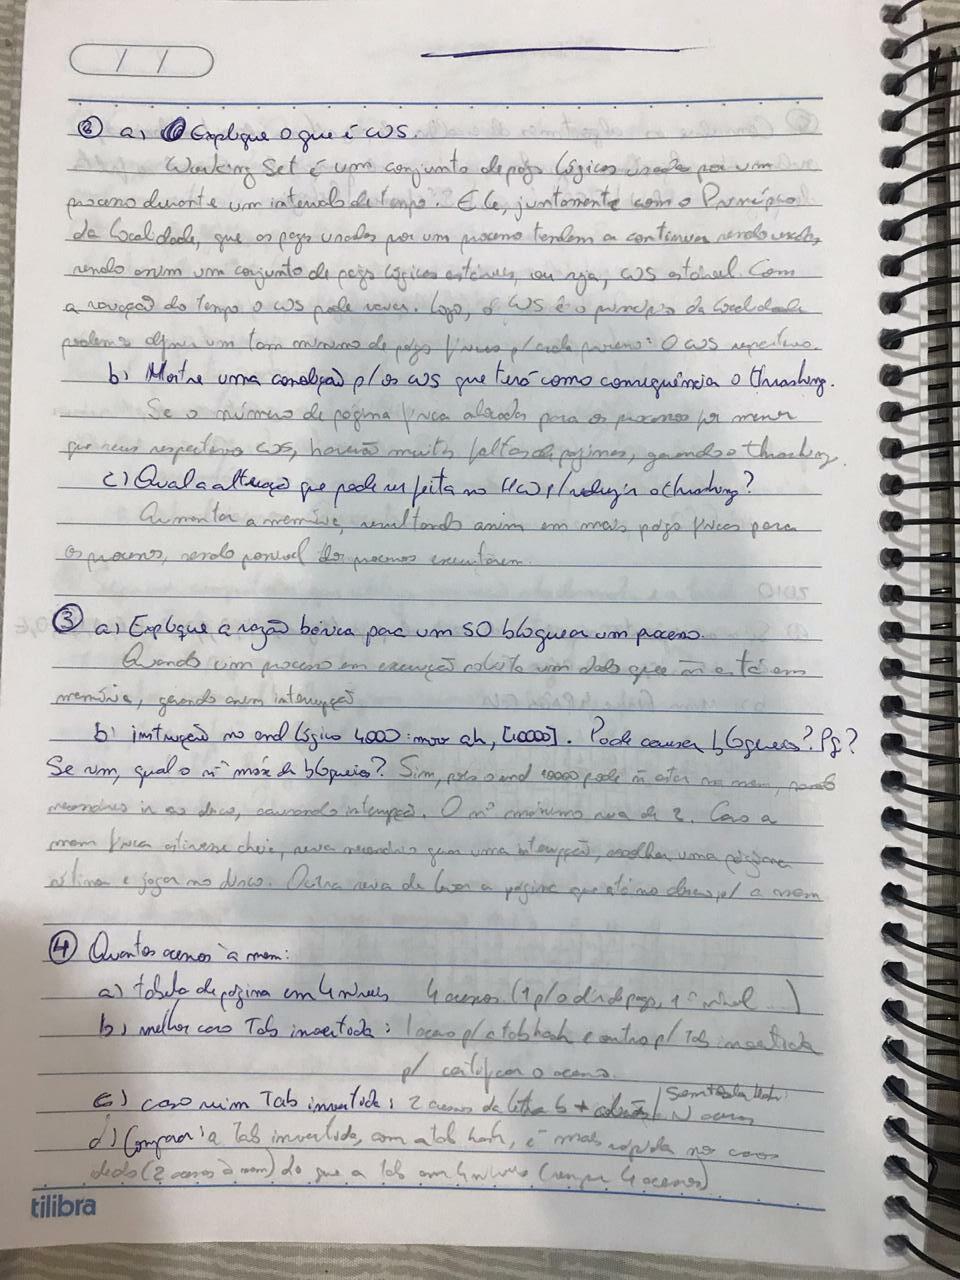 2 a) Explique o que é WS.
Working Set é um conjunto de págs lógicas usadas por um
processo durante um intervalo de tempo. Ele, juntamente com o Princípio
da localidade, que as pags usadas por um processo tendem a continuar sendo usadas,
sendo assim um conjunto de pags lógicas estáveis, ou seja, WS estável. Com
a variação do tempo o WS pode variar. Logo, o WS é o princípio da localidade
podemos definir um tam mínimo de pags físicas p/ cada processo: O WS respectivo.
b) Mostre uma condição p/ os WS que terá como consequência o thrashing.
Se o número de página física alocadas para os processos for menor
que seus respectivos WS, haverão muitas faltas de páginas, gerando o thrashing.
c) Qual a alteração que pode ser feita no HW p/ reduzir o thrashing?
Aumentar a memória, resultando assim em mais pags físicas para
os processos, sendo possível dos processos executarem.
3 a) Explique a razão básica para um SO bloquear um processo.
Quando um processo em execução solicita um dado que ñ está em
memória, gerando assim interrupção
b) instrução no end lógico 4000: mov ah, [10000]. Pode causar bloqueio? Pq?
Se sim, qual o nº máx de bloqueios? Sim, pois o end 10000 pode ñ estar na mem, sendo
necessário ir ao disco, causando interrupção. O nº mínimo será de 2. Caso a
mem física estivesse cheia, seria necessário gerar uma interrupção, escolher uma página
vítima e jogar no disco. Outra seria de levar a página que está no disco p/ a mem
4 Quantos acessos à mem:
a) tabela de página em 4 níveis 4 acessos (1 p/ o dir de pags, 1º nível ...)
b) melhor caso Tab invertida: 1 acesso p/ a tab hash e outro p/ Tab invertida
p/ certificar o acesso.
c) caso ruim Tab invertida: 2 acessos da letra b + colisão / Sem tabela Hash:
N acessos
d) Comparar: a Tab invertida, com a tab hash, é mais rápida no caso
ideal (2 acessos à mem) do que a tab em 4 níveis (sempre 4 acessos)
tilibra